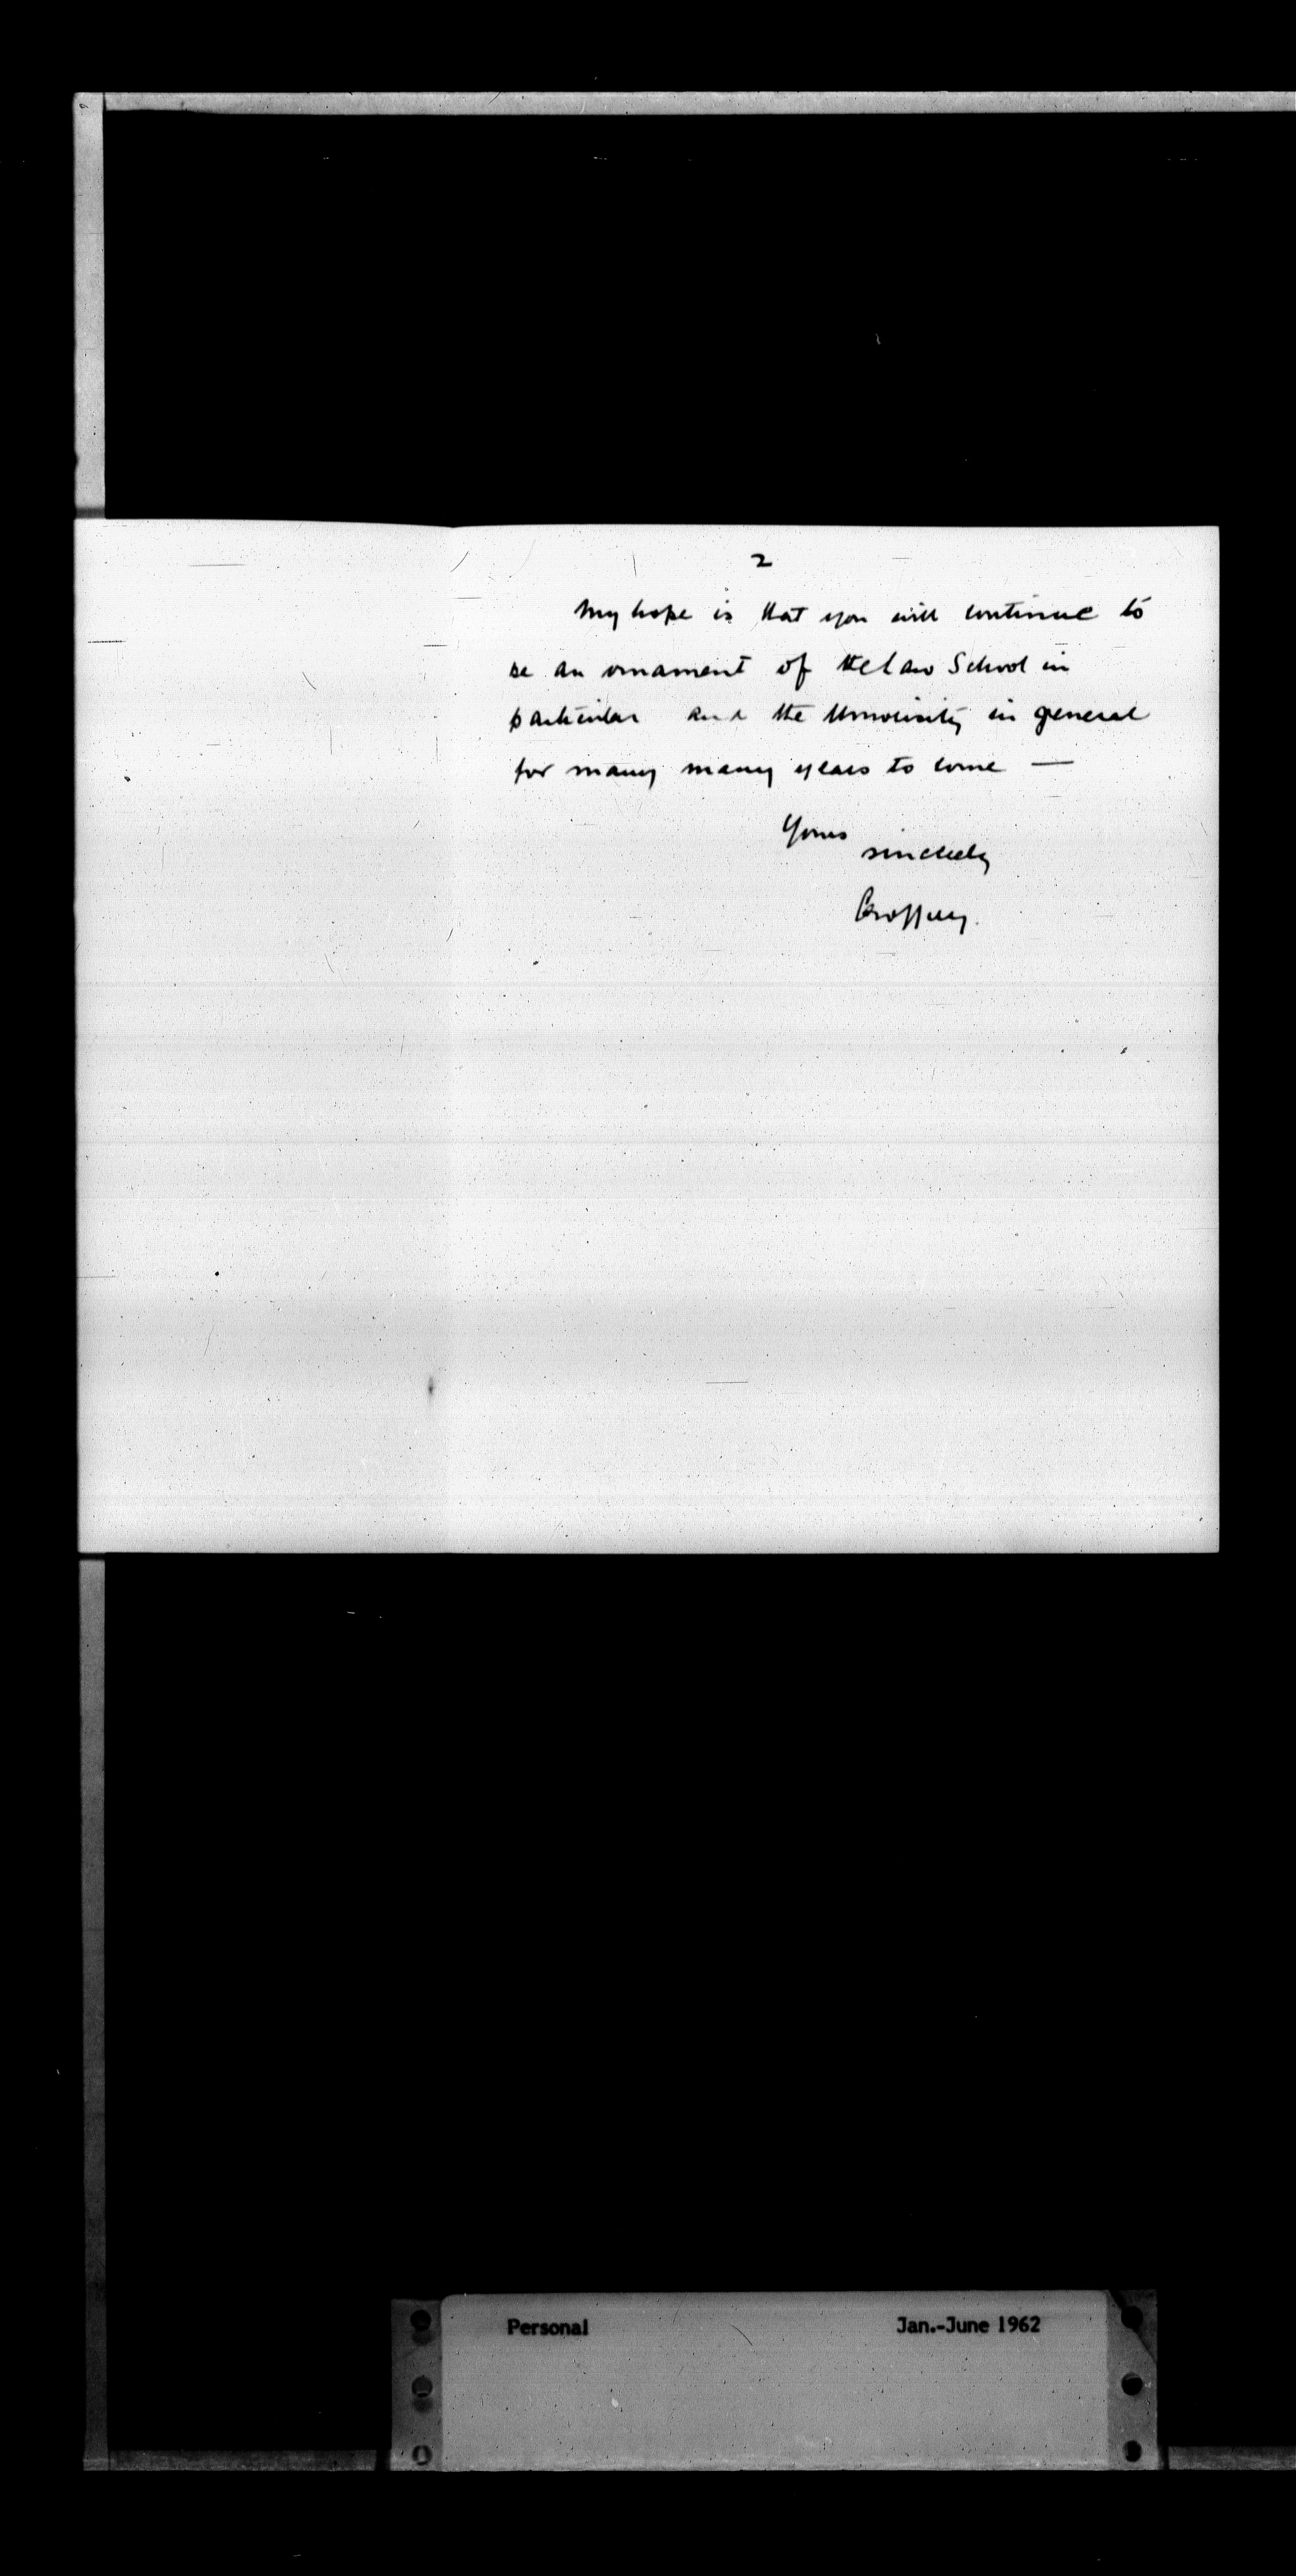 2
My hope is that you will continue to
be an ornament of the Law School in
particular and the University in general
for many many years to come —
Yours
sincerely
Personal Jan.-June 1962